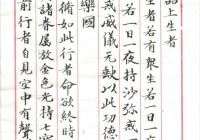 品中生者若有眾生若一日一
若一日一夜持沙弥戒
戒威儀無缺以此功德
樂國
如此行者命欲終時
諸眷屬放金色光持七寶
前行者自見空中有聲